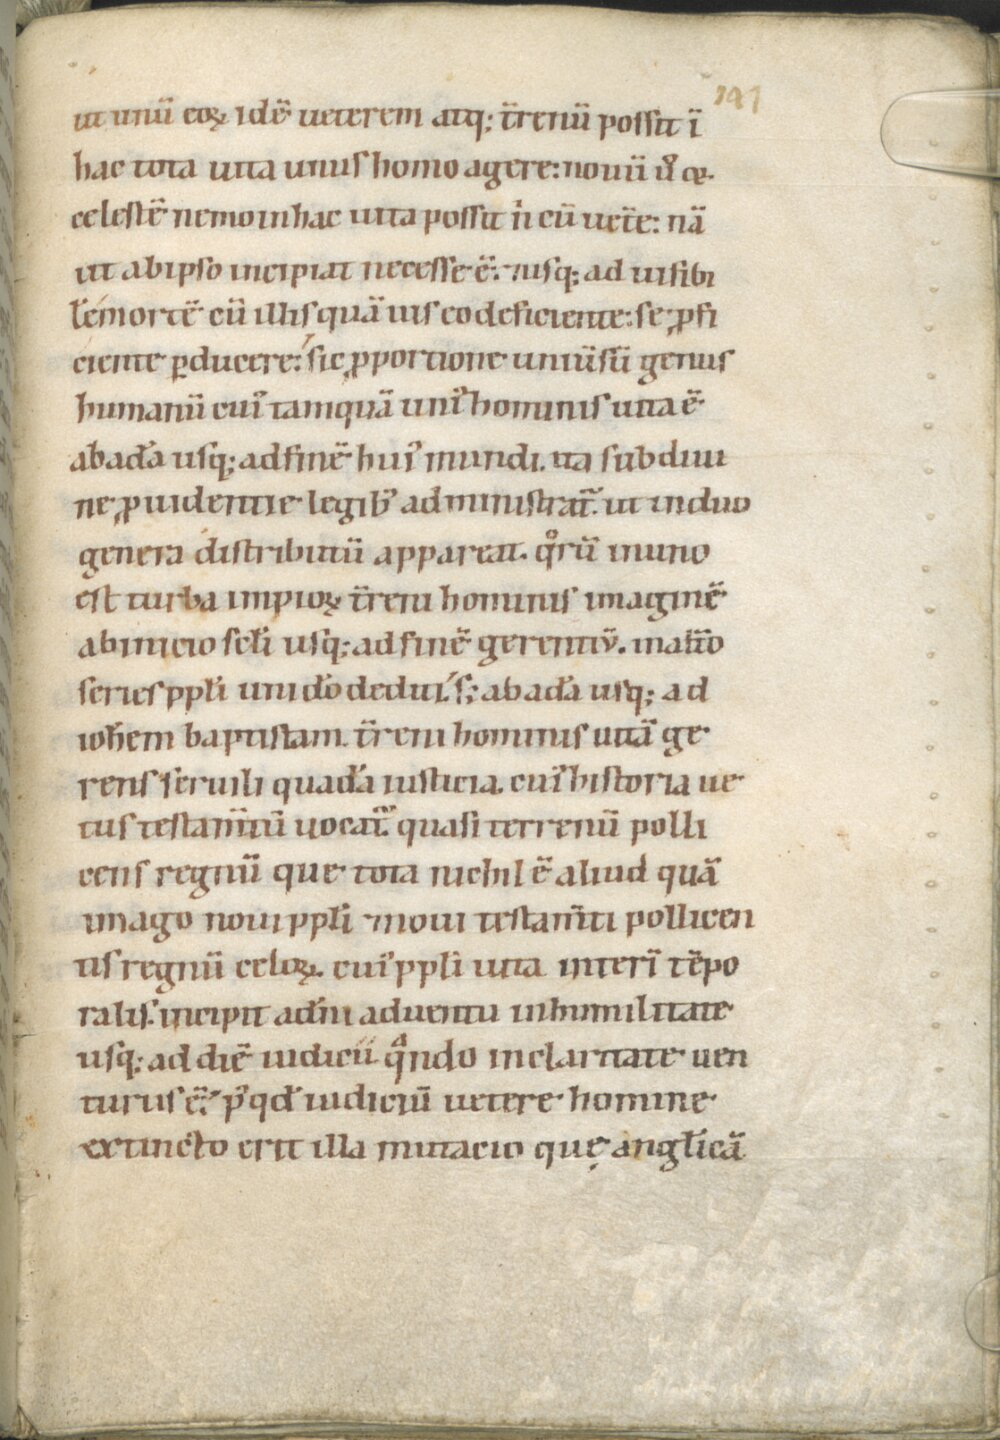 191
ut unū eoꝝ idē ueterem atq; t̄renū possit ī
hac tota uita unus homo agere: nouū u̾ ce
celestē nemo in hac uita possit n̾ cū uet̄e: nā
ut ab ipso incipiat necesse ē. ⁊ usq; ad uisibi
lē mortē cū illis quāuis eo deficiente: se ꝓfi
ciente ꝑducere: sic ꝓportione uniūsū genus
humanū cui᾽ tamquā uni᾽ hominis uita ē
ab adā usq; ad finē hui᾽ mundi. ita sub diui
ne ꝓuidentie legib᾽ administrat̃. ut in duo
genera distributū appareat. qͦrū in uno
est turba impioꝝ t̄reni hominis imaginē
ab inicio scl̄i usq; ad finē gerentiū. in alt̄o
series ppl̄i uni dō dediti. s; ab adā usq; ad
ioh̄em baptistam. t̄reni hominis uitā ge
rens seruili quadā iusticia. cui᾽ historia ue
tus testam̄tū uocat̃. quasi terrenū polli
cens regnū que tota nichil ē aliud quā
imago noui ppl̄i ⁊ noui testam̄ti pollicen
tis regnū celoꝝ. cui᾽ ppl̄i uita interī tēpo
ralis. incipit a dn̄i aduentu in humilitate
usq; ad diē iudicii. qͣndo in claritate uen
turus ē. p᾽ qd̄ iudiciū uetere homine
extincto erit illa mutacio quę angl̄icā